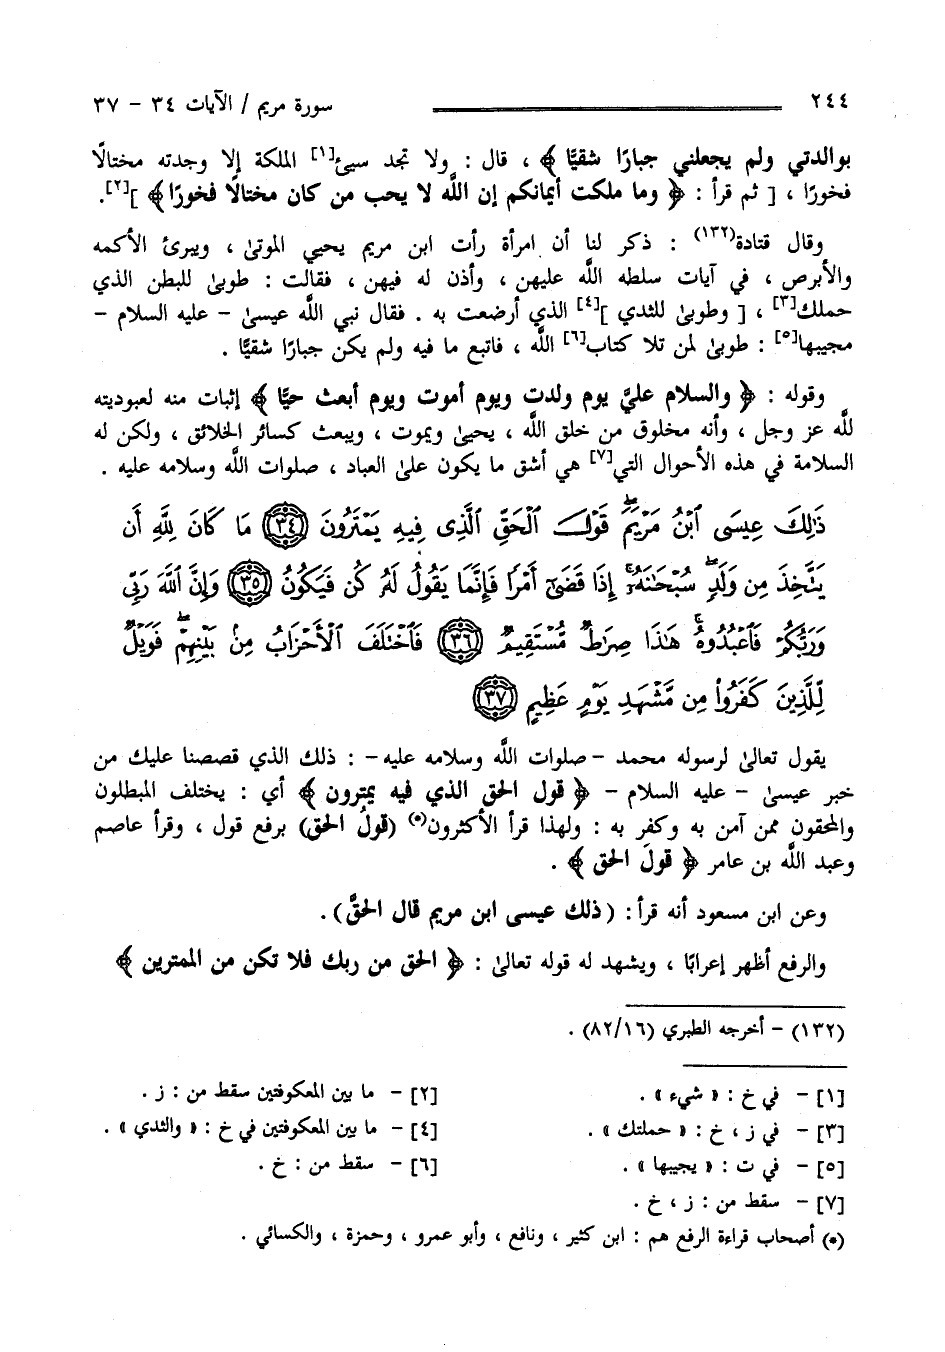 ٢٤٤ سورة مريم / الآيات ٣٤ - ٣٧
بوالدتي ولم يجعلني جبارًا شقيًّا ﴾ ، قال : ولا تجد سيئ[١] الملكة إلا وجدته مختالًا
فخورًا ، [ ثم قرأ : ﴿ وما ملكت أيمانكم إن اللَّه لا يحب من كان مختالا فخورًا ﴾ ][٢].
وقال قتادة(١٣٢) : ذكر لنا أن امرأة رأت ابن مريم يحيي الموتىٰ ، ويبرئ الأكمه
والأبرص ، في آيات سلطه اللَّه عليهن ، وأذن له فيهن ، فقالت : طوبىٰ للبطن الذي
حملك[٣] ، [ وطوبىٰ للثدي ][٤] الذي أرضعت به . فقال نبي اللَّه عيسىٰ - عليه السلام -
مجيبها[٥] : طوبىٰ لمن تلا كتاب[٦] اللَّه ، فاتبع ما فيه ولم يكن جبارًا شقيًّا .
وقوله : ﴿ والسلام عليَّ يوم ولدت ويوم أموت ويوم أبعث حيًّا ﴾ إثبات منه لعبوديته
للَّه عز وجل ، وأنه مخلوق من خلق اللَّه ، يحيىٰ ويموت ، ويبعث كسائر الخلائق ، ولكن له
السلامة في هذه الأحوال التي[٧] هي أشق ما يكون علىٰ العباد ، صلوات اللَّه وسلامه عليه .
ذَٰلِكَ عِيسَى ٱبْنُ مَرْيَمَ ۖ قَوْلَ ٱلْحَقِّ ٱلَّذِى فِيهِ يَمْتَرُونَ ﴿٣٤﴾ مَا كَانَ لِلَّهِ أَن
يَتَّخِذَ مِن وَلَدٍ ۖ سُبْحَٰنَهُۥٓ ۚ إِذَا قَضَىٰٓ أَمْرًا فَإِنَّمَا يَقُولُ لَهُۥ كُن فَيَكُونُ ﴿٣٥﴾ وَإِنَّ ٱللَّهَ رَبِّى
وَرَبُّكُمْ فَٱعْبُدُوهُ ۚ هَٰذَا صِرَٰطٌ مُّسْتَقِيمٌ ﴿٣٦﴾ فَٱخْتَلَفَ ٱلْأَحْزَابُ مِنۢ بَيْنِهِمْ ۖ فَوَيْلٌ
لِّلَّذِينَ كَفَرُوا۟ مِن مَّشْهَدِ يَوْمٍ عَظِيمٍ ﴿٣٧﴾
يقول تعالىٰ لرسوله محمد - صلوات اللَّه وسلامه عليه - : ذلك الذي قصصنا عليك من
خبر عيسىٰ - عليه السلام - ﴿ قول الحق الذي فيه يمترون ﴾ أي : يختلف المبطلون
والمحقون ممن آمن به وكفر به : ولهذا قرأ الأكثرون(*) (قولُ الحق) برفع قول ، وقرأ عاصم
وعبد اللَّه بن عامر ﴿ قولَ الحق ﴾ .
وعن ابن مسعود أنه قرأ : (ذلك عيسى ابن مريم قال الحقَّ) .
والرفع أظهر إعرابًا ، ويشهد له قوله تعالىٰ : ﴿ الحق من ربك فلا تكن من الممترين ﴾
(١٣٢) - أخرجه الطبري (٨٢/١٦) .
[١] - في خ : « شيء » . [٢] - ما بين المعكوفتين سقط من : ز .
[٣] - في ز ، خ : « حملتك » . [٤] - ما بين المعكوفتين في خ : « والثدي » .
[٥] - في ت : « يجيبها » . [٦] - سقط من : خ .
[٧] - سقط من : ز ، خ .
(*) أصحاب قراءة الرفع هم : ابن كثير ، ونافع ، وأبو عمرو ، وحمزة ، والكسائي .